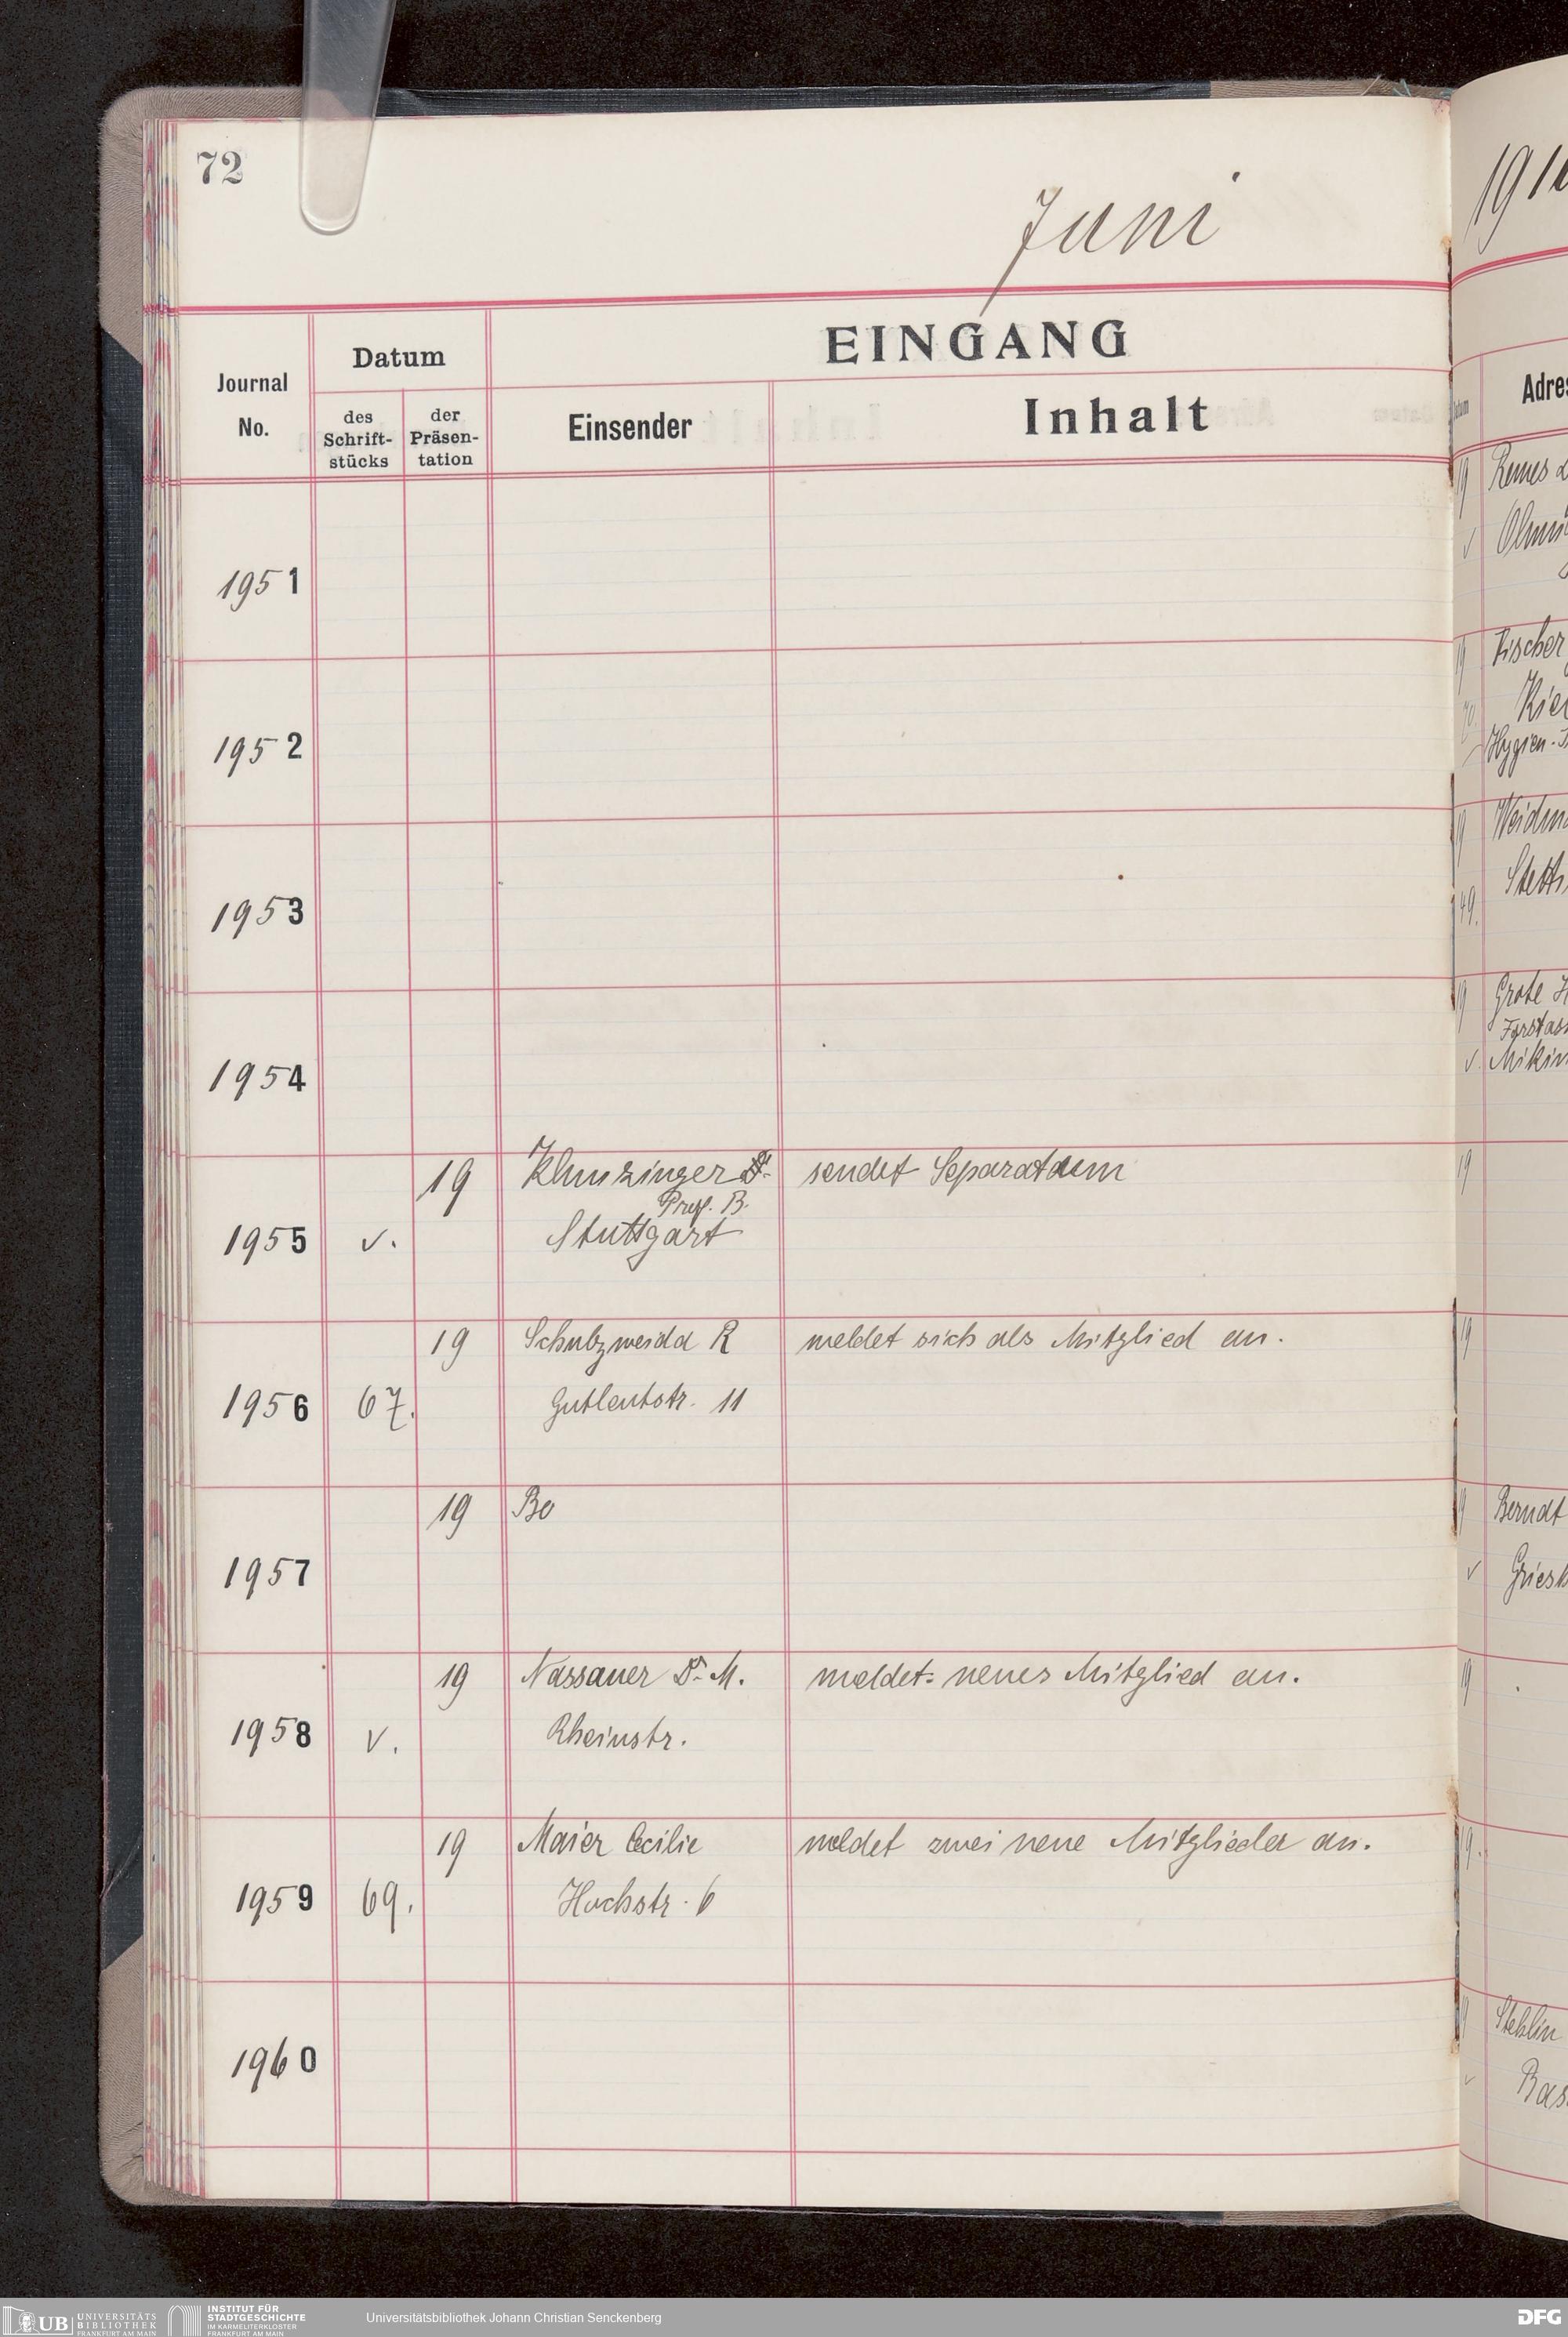 72
Juni
Journal
No.
Datum
des
Schrift-
stücks
der
Präsen-
tation
EINGANG
Einsender
Inhalt
1951
1952
1953
1954
1955 v. 19 Klunzinger Dr. sendet Separatum
Prof. B.
Stuttgart
1956 67. 19 Schulz meldet sich als Mitglied an.
Gutleutstr. 11
1957 19 Bo
1958 v. 19 Nassauer Dr. M. meldet: neues Mitglied an.
Rheinstr.
1959 69. 19 Maier Cecilie meldet zwei neue Mitglieder an.
Hochstr. 6
1960
191
Adres
19
Fischer
Kiel
Hygien.
19
49.
19
Grote
19
19
19 Berndt
v
19
19.
19 Stehlin
v Bas
UB UNIVERSITÄTS
BIBLIOTHEK
FRANKFURT AM MAIN
INSTITUT FÜR
STADTGESCHICHTE
IM KARMELITERKLOSTER
FRANKFURT AM MAIN
Universitätsbibliothek Johann Christian Senckenberg
DFG